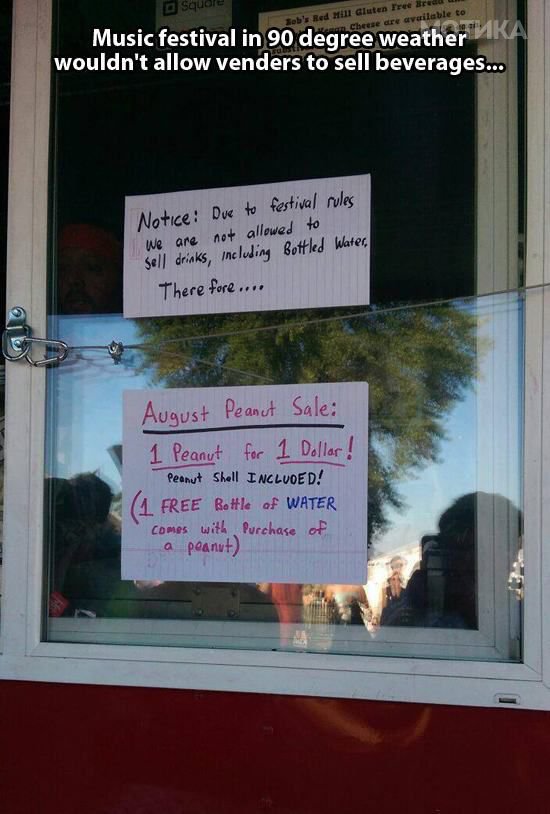 Square
Bob's Red Mill Gluten Free Bread
Cheese are available to
МОТИКА
Music festival in 90 degree weather
wouldn't allow venders to sell beverages...
Notice: Due to festival rules
we are not allowed to
sell drinks, including Bottled Water,
Therefore....
August Peanut Sale:
1 Peanut for 1 Dollar!
Peanut Shell INCLUDED!
(1 FREE Bottle of WATER
comes with Purchase of
a peanut)